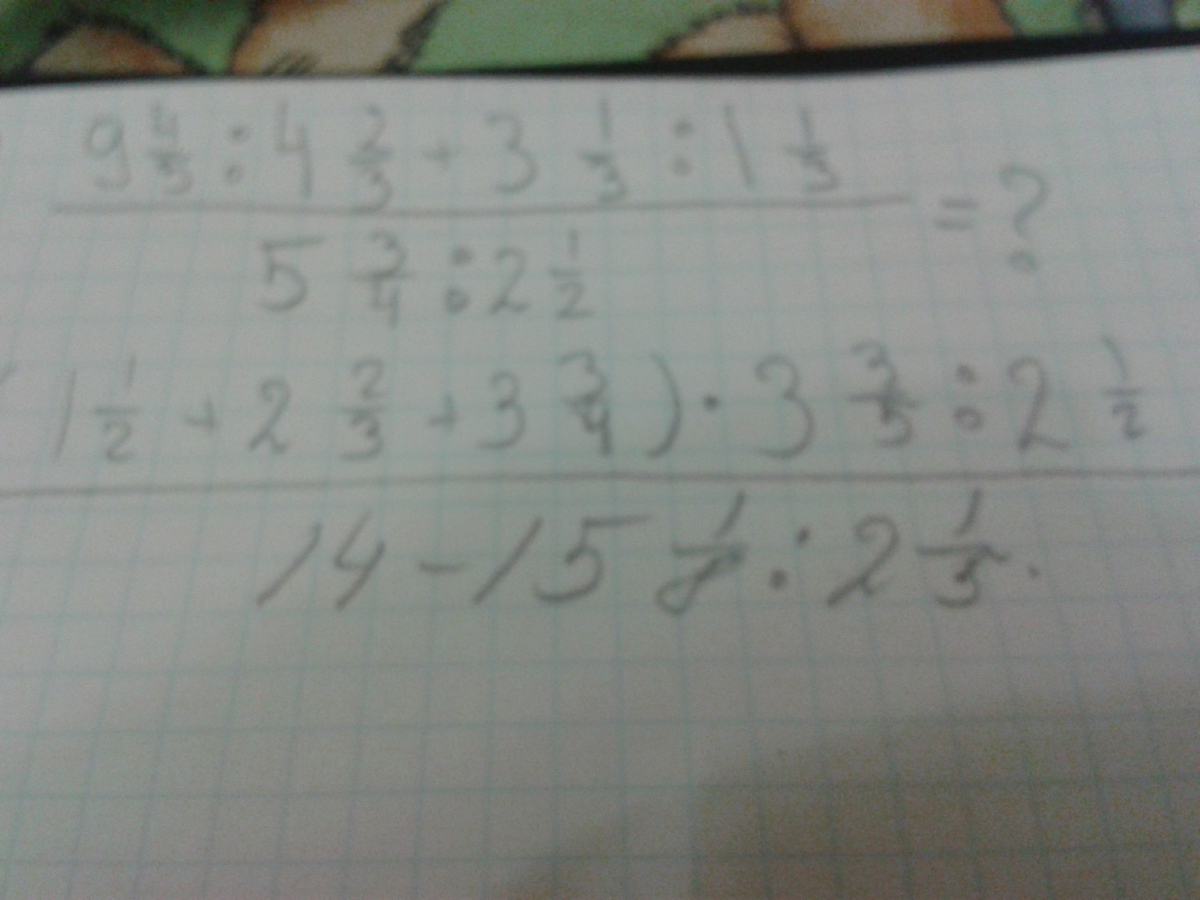 9 4/5 : 4 2/3 + 3 1/3 : 1 1/3
= ?
5 3/4 : 2 1/2
(1 1/2 + 2 2/3 + 3 3/4) · 3 3/5 : 2 1/2
14 - 15 1/8 : 2 1/5.